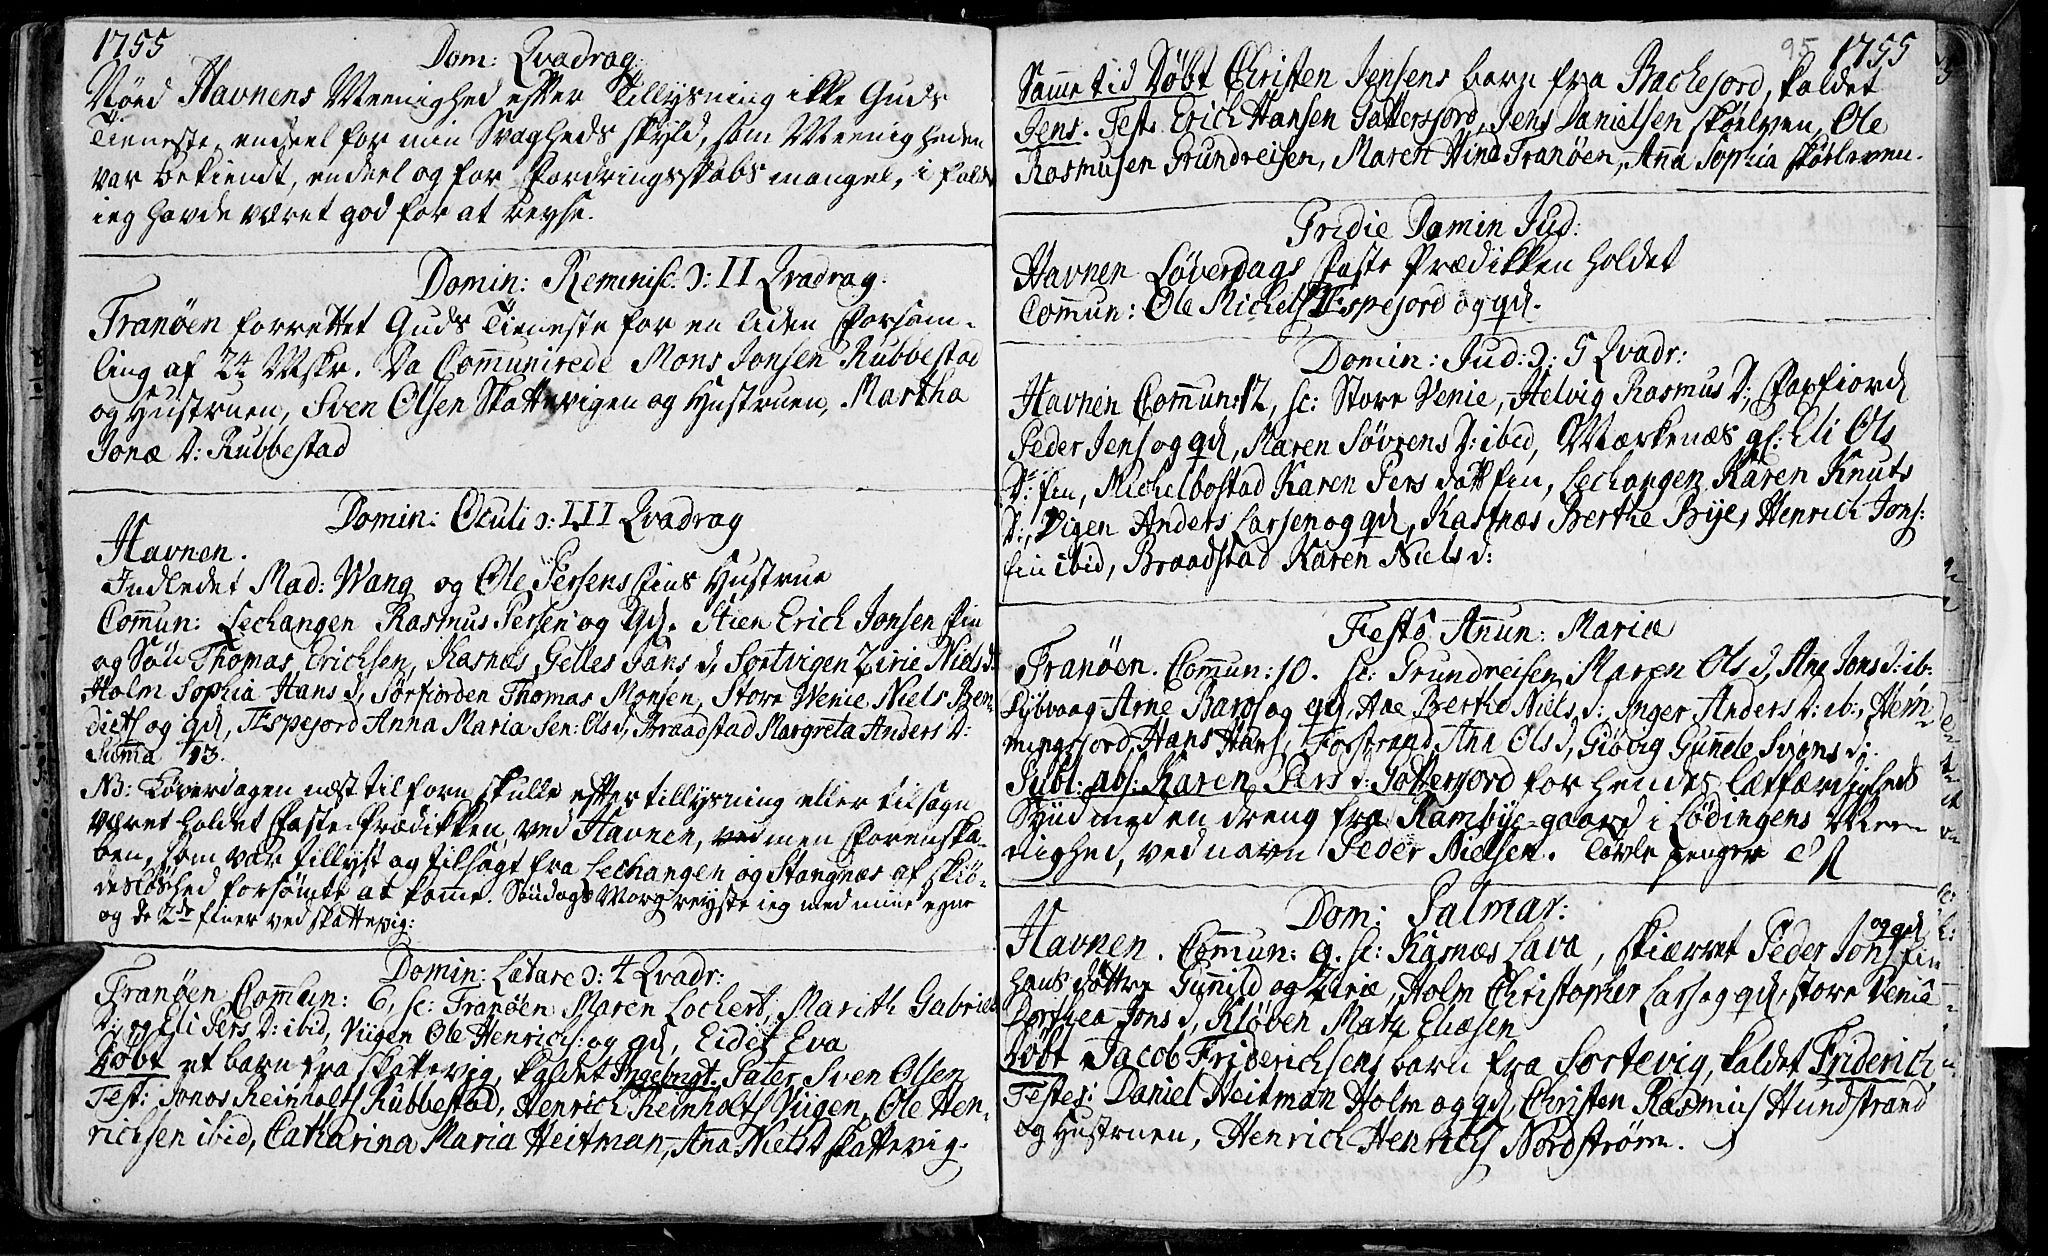 1755
Dom: Qvadrag:
Ved Havnens Meenighed efter Tillysning ikke Guds
Tieneste, endeel for min Svagheds skyld, som Meenigheden
var bekiendt, endeel og for Fordringsskabs mangel, i fald
ieg havde været god for at reyse.
Domin: Reminisc: ɔ: II Qvadrag:
Tranöen forrettet Guds Tieneste for en liden Forsam-
ling af 24 Mskr. Da Comunirede Mons Jonsen Rubbestad
og Hustruen, Sven Olsen Skattevigen og Hustruen, Martha
Jonæ D: Rubbestad
Domin: Oculi ɔ: III Qvadrag
Havnen.
Indledet Mad: Wang og Ole Persens fins Hustrue
Comun: Lechangen Rasmus Persen og qd. Stien Erich Jonsen fin
og Søn Thomas Erichsen, Kasnæs Gelles Hans d, Sortvigen Zirie Niels d:
Holm Sophia Hans d, Sörfiorden Thomas Monsen, Store Wenie Niels Ben-
dicts og qd, Espejord Anna Maria Sen: Ols d, Braadstad Margreta Anders D:
Summa 13.
NB: Løverdagen næst tilforn skulle efter tillysning eller tilsagn
været holdet Faste-Prædikken ved Havnen, men Forenska-
ben, som var tillyst og tilsagt fra Lechangen og Stangnæs af skiö-
deslöshed forsömte at komme. Søndags Morg reyste ieg med mine egne
og de 2de finer ved skattevig:
Domin: Lætare ɔ: 4 Qvadr:
Tranöen Comun: 6, sc: Tranöen Maren Lochert, Marith Gabriels
D: og Eli Pers D: ibid, Viigen Ole Henrichs: og qd, Eidet Eva
Döbt et barn fra skattevig, kaldet Ingebrigt. Pater Sven Olsen
Test: Jonas Reinholts Rubbestad, Henrich Reinholts Viigen, Ole Hen-
richsen ibid, Catharina Maria Heitman, Ana Niels D skattevig.
95 1755
Samme tid Döbt Christen Jensens barn fra Bachejord, kaldet
Jens. Test: Erich Hansen Gattersjord, Jens Danielsen skøelven, Ole
Rasmusen Grundreisen, Maren Hind Tranöen, Anna Sophia skøelven.
Pridie Domin Jud:
Havnen Løverdags Faste Prædikken holdet
Comun: Ole Michels Espejord og qd.
Domin: Jud: ɔ: 5 Qvadr:
Havnen Comun: 12, sc: Store Venie, Helvig Rasmus D:, Forfiord
Peder Jens og qd, Maren Sövrens D: ibid, Mærkenæs gl: Eli Ols
D: fin, Michelbostad Karen Pers datt fin, Lechangen Karen Knuts
D:, Vigen Anders Larsen og qd, Kastnæs Berthe Brije, Henrich Jons:
fin ibid, Braadstad Karen Niels d:
Festo Anun: Mariæ
Tranöen. Comun: 10. sc: Grundreisen Maren Ols d, Ane Jons d: ib:
Dybvaag Arne Baros og qd, Ane Berthe Niels d:, Inger Anders D: ib:, Hem-
mingsjord, Hans Hans, Forstrand Ana Ols d, GiöVig Gunele Svions d:
Publ: abs: Karen Pers d: Gattersjord for hendes Letfærdigheds
Synd med en dreng fra Rambye-gaard i Lødingens Mee-
nighed, ved navn Peder Nielsen. Tavle penger
Dom: Palmar:
Havnen. Comun: 9. sc: Kasnæs Lava, skiærret Peder Jons fin og qd
hans döttre Gunild og Zirie, Holm Christopher Lars og qd, store Venie
Dorthea Jons d, Klöven Mata Eliæsen
Döbt Jacob Friderichsens barn fra Sortevig, kaldet Friderich
Testes: Daniel Heitman Holm og qd, Christen Rasmus Hundstrand
og Hustruen, Henrich Henrichs Nordström.